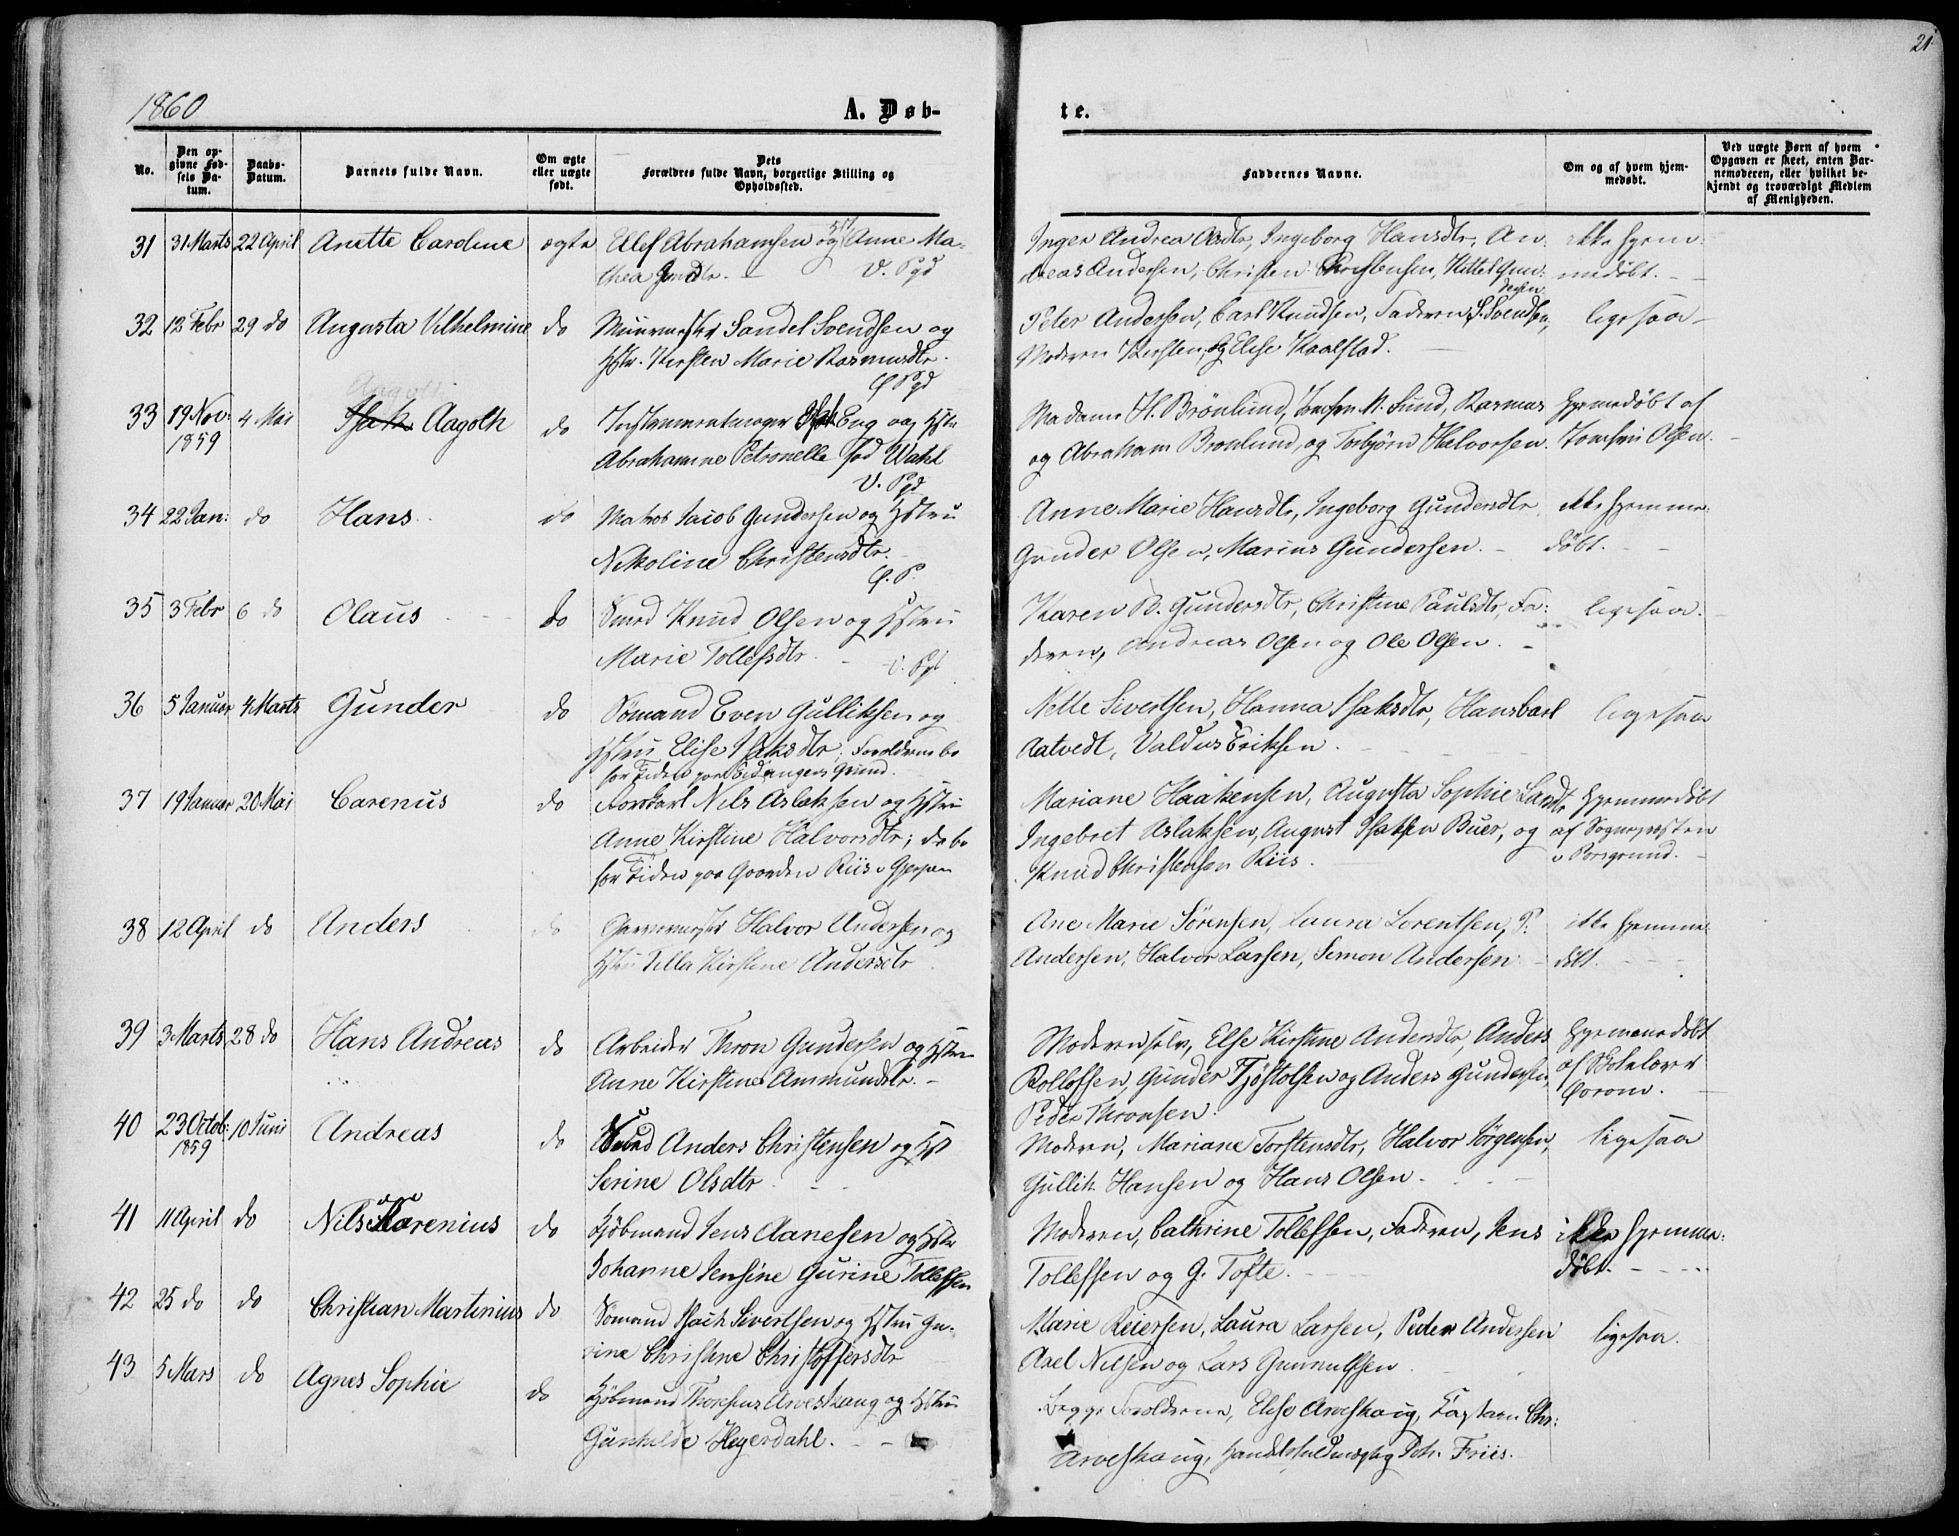 1860
A. Døb-
te.
21
No.
Den op-
givne Fød-
sels Da-
tum.
Daabs-
Datum.
Barnets fulde Navn.
Om ægte
eller uægte
født.
Dets
Forældres fulde Navn, borgerlige Stilling og
Opholdssted.
Faddernes Navne.
Om og af hvem hjem-
medøbt.
Ved uægte Børn af hvem
Opgaven er skeet, enten Bar-
nemoderen, eller hvilket be-
kjendt og troværdigt Medlem
af Menigheden.
31 31 Marts 22 April Anette Caroline ægte Ellef Abrahamsen og Anne Ma-
thea V. Pgd
Inger Andrea Olsdtr, Ingeborg Hansdtr, An-
dreas Andersen, Christen Christensen, Kittel Gun-
dersen
ikke hjem-
medøbt.
32 12 Febr 29 do Augusta Vilhelmine do Muurmester Sandel Svendsen og
Hstr. Kirsten Marie Rasmusdtr.
Ø Pgd
Peter Andersen, Carl Knudsen, Faderen S. Svendsen,
Moderen Kirsten, og Elise Kaalstad.
ligesaa
33 19 Nov: 1859 4 Mai Isak Aagoth do Instrumentmager Isak Eng og Hstr
Abrahamine Petronelle fød Wahl
V. Pgd
Madame H. Brönlund, M. Sund, Rasmus
og Abraham Brönlund, og Torbjörn Halvorsen.
Hjemmedøbt af
Olsen.
34 22 Jan: do Hans do Matros Jacob Gundersen og Hstru
Nikoline Christensdtr.
Ø. P.
Anne Marie Hansdtr, Ingeborg Gundersdtr
Gunder Olsen, Marius Gundersen.
ikke hjemme-
døbt.
35 3 Febr 6 do Olaus do Smed Knud Olsen og Hstru
Marie Tollefsdtr.
V. Pgd
Karen B. Gundersdtr, Christine Paulsdtr, Fa-
deren, Andreas Olsen og Ole Olsen.
ligesaa.
36 5 Januar 4 Marts Gunder do Sømand Even Gulliksen og
Hstru Elise Isaksdtr. Forældrene bo
for Tiden paa Eidangers Grund.
Nelle Sivertsen, Hanna Isaksdtr, Hans Carl
Aatvedt, Valdus Eriksen.
ligesaa
37 19 Januar 20 Mai Carenius do Nils Aslaksen og Hstru
Anne Kirstine Halvorsdtr; de bo
for Tiden paa Gaarden Riis i Gjerpen
Mariane Haakensen, Augusta Sophie
Ingebret Aslaksen, August Isaksen Buer, og
Knud Christensen Riis.
Hjemmedøbt
af Sognepresten
i Porsgrund.
38 12 April do Anders do Halvor Andersen og
Hstru Silla Kirstine Andersdtr
Ane Marie Sörensen, Laura Lorentsen, P.
Andersen, Halvor Larsen, Simon Andersen
ikke hjemme-
døbt.
39 3 Marts 28 do Hans Andreas do Arbeider Thron Gundersen og Hstru
Anne Kirstine Ammundsdtr.
Moderen selv, Else Kirstine Andersdtr, Anders
Rollefsen, Gunder Tjöstolsen og Anders Gundersen,
Peder Thronsen.
Hjemmedøbt
af Skolelærer
40 23 Octob: 1859 10 Juni Andreas do Smed Anders Christensen og Hst
Serine Olsdtr
Moderen, Mariane Torstensdtr, Halvor Jörgensen,
Gullik Hansen og Hans Olsen.
ligesaa
41 11 April do Nils Karenius do Kjöbmand Jens Aanesen og Hstr
Johanne Jensine Gurine Tollefsen
Moderen, Cathrine Tollefsen, Faderen, Jens
Tollefsen og G. Tofte.
ikke hjemme-
døbt.
42 25 do do Christian Martinius do Sømand Isach Sivertsen og Hstru Gu-
rine Christine Christoffersdtr
Marie Reiersen, Laura Larsen, Peder Andersen
Axel Nilsen og Lars Gunnulfsen
ligesaa.
43 5 Mars do Agnes Sophie do Kjöbmand Thorsen Arveskaug og Hstru
Gunhilde Hegerdahl.
Begge Forældrene, Elise Arveskaug, Captain Chr:
Arveskaug, Joh. Friis.